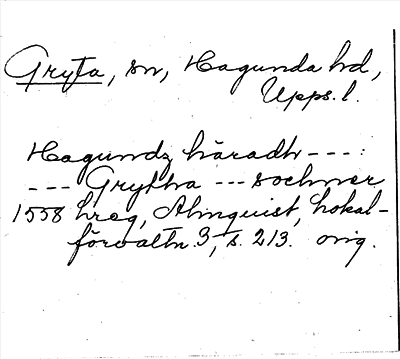 Gryta, sn, Hagunda hd,
Upps. l.
Hagundz häradh ---:
--- Grytha --- sochner
1558 hreg, Almquist, Lokal-
förvaltn. 3, s. 213. orig.